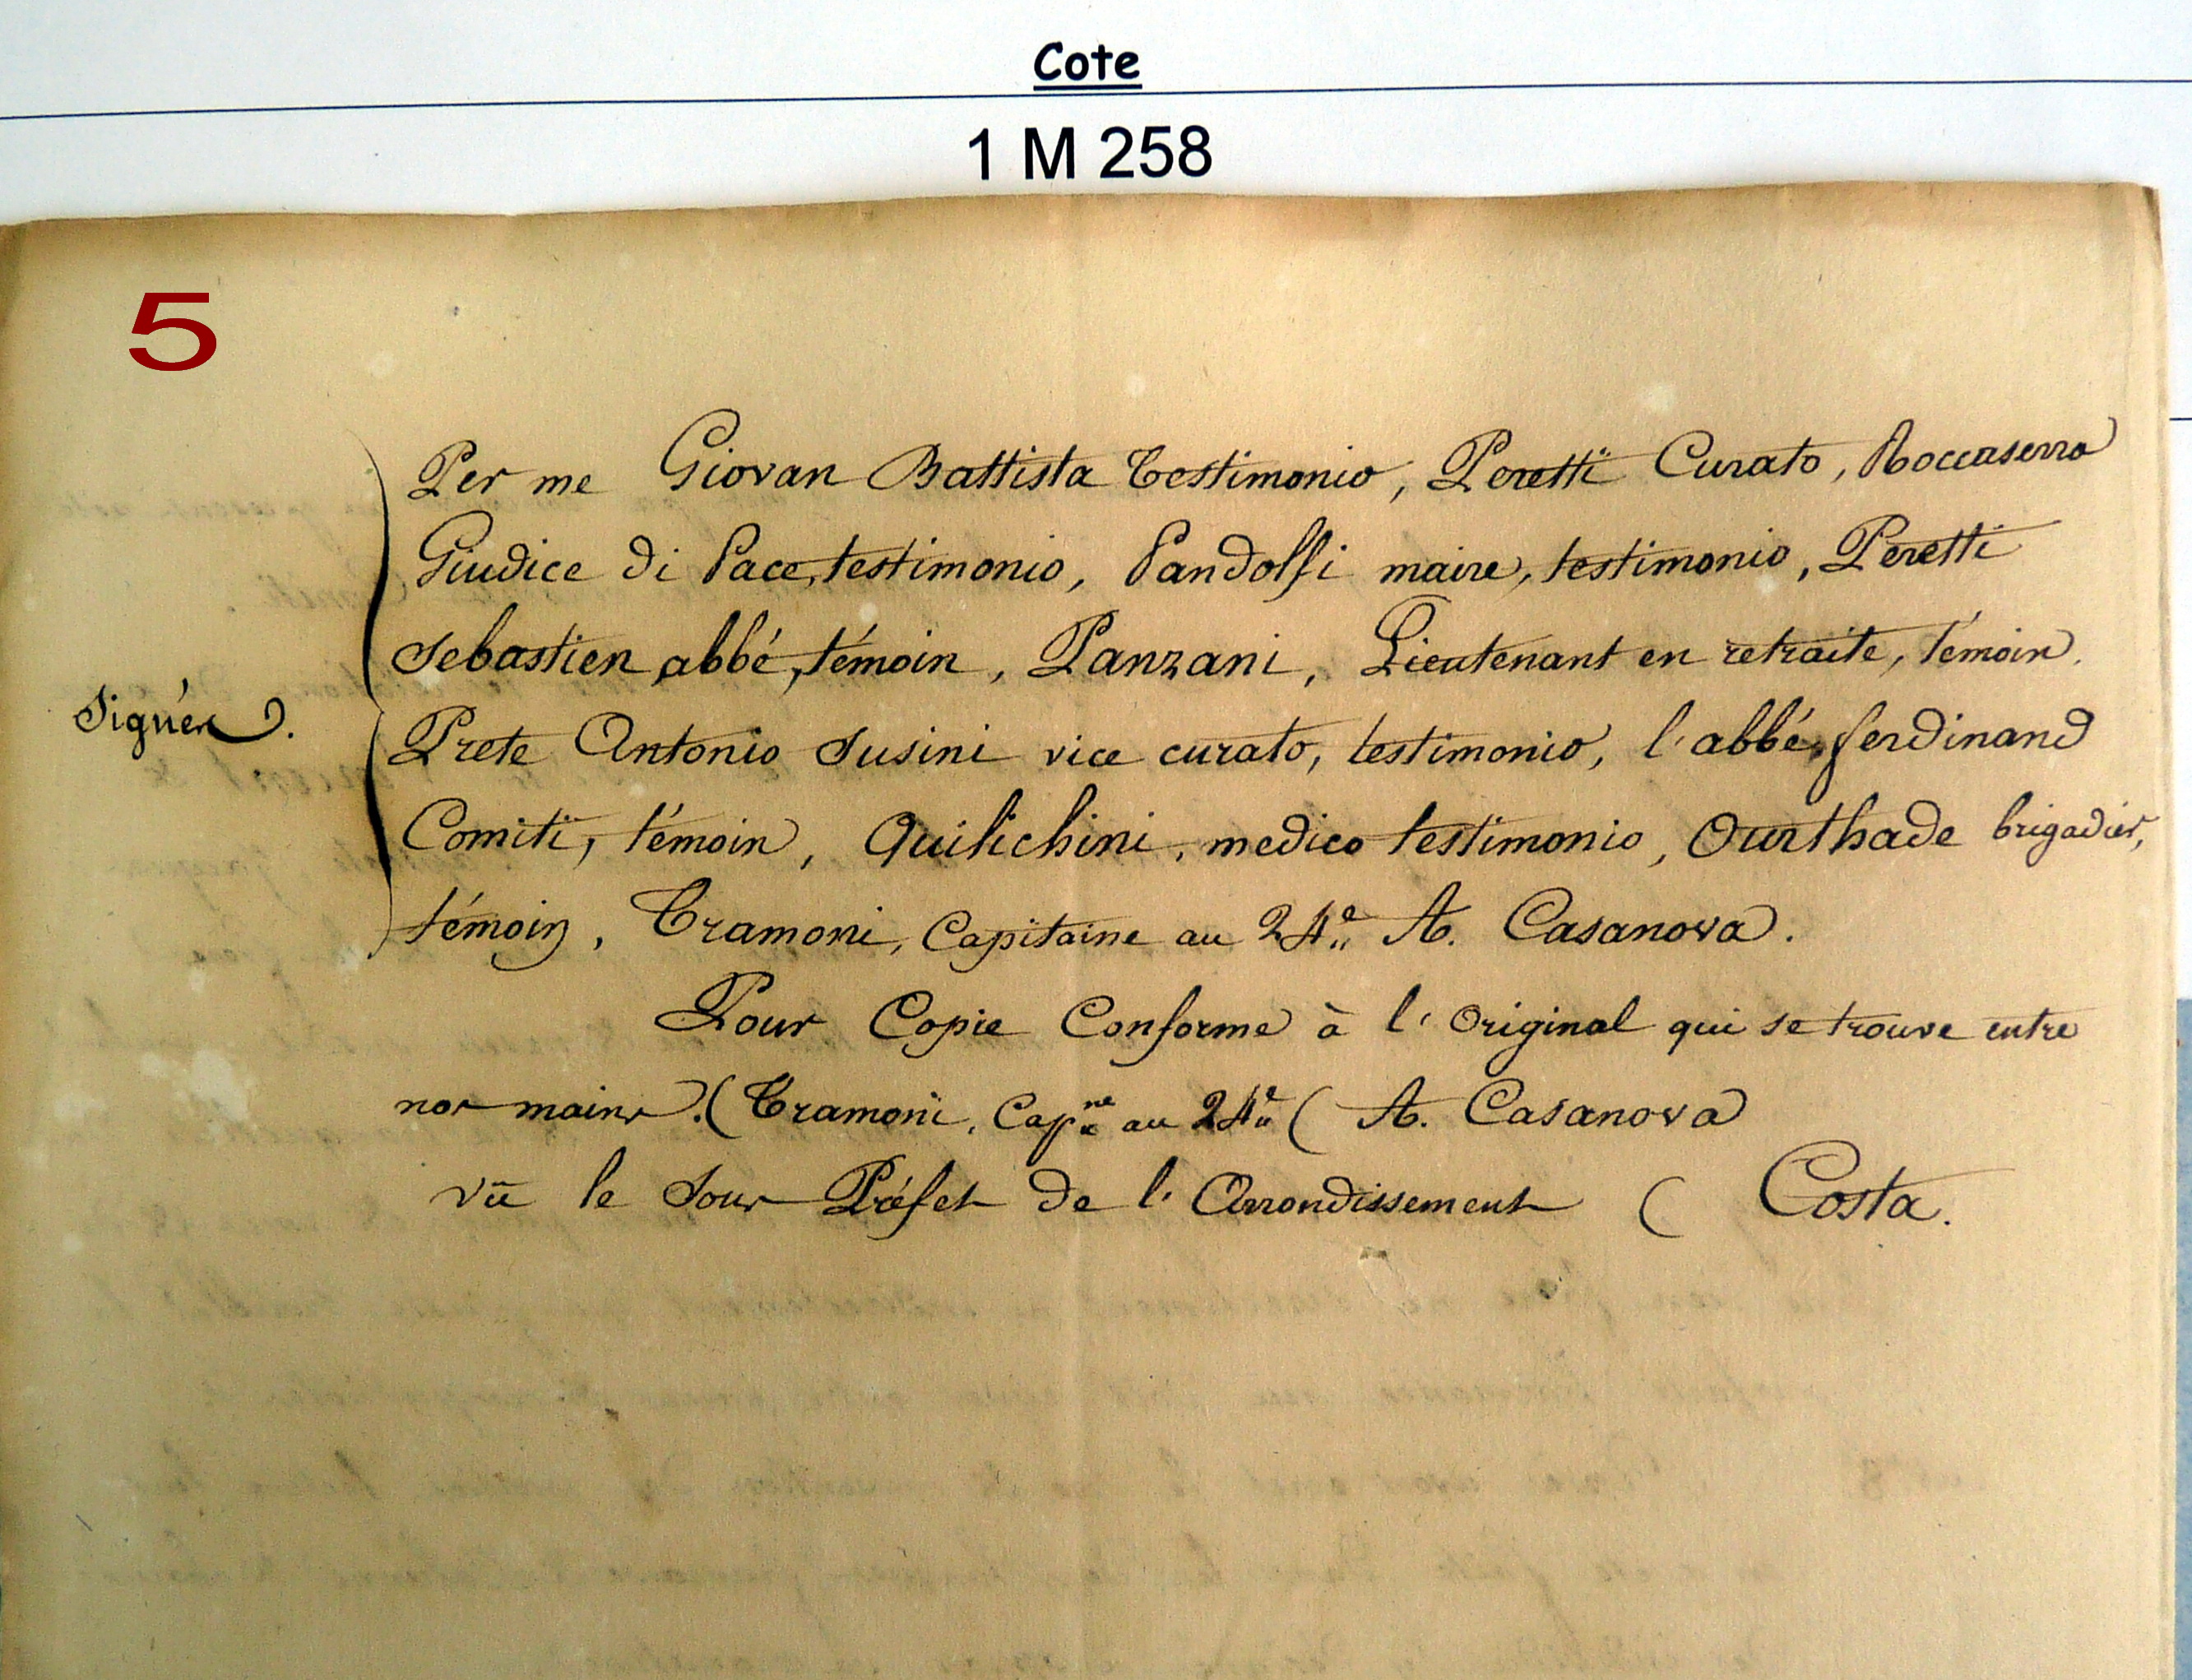 Cote
1 M 258
5
Per me Giovan Battista testimonio, Peretti Curato, Roccaserra
Giudice di Pace, testimonio, Pandolfi maire, testimonio, Peretti
Sebastien abbé, témoin, Panzani, Lieutenant en retraite, témoin.
Signés.
Prete Antonio Susini vice curato, testimonio, l'abbé ferdinand
Comiti, témoin, Quilichini, medico testimonio, Ourthade brigadier,
témoin, Tramoni, Capitaine au 24e A. Casanova.
Pour Copie Conforme à l'Original qui se trouve entre
nos mains. (Tramoni, Capne au 24e ( A. Casanova
vû le Sous Préfet de l'Arrondissement ( Costa.